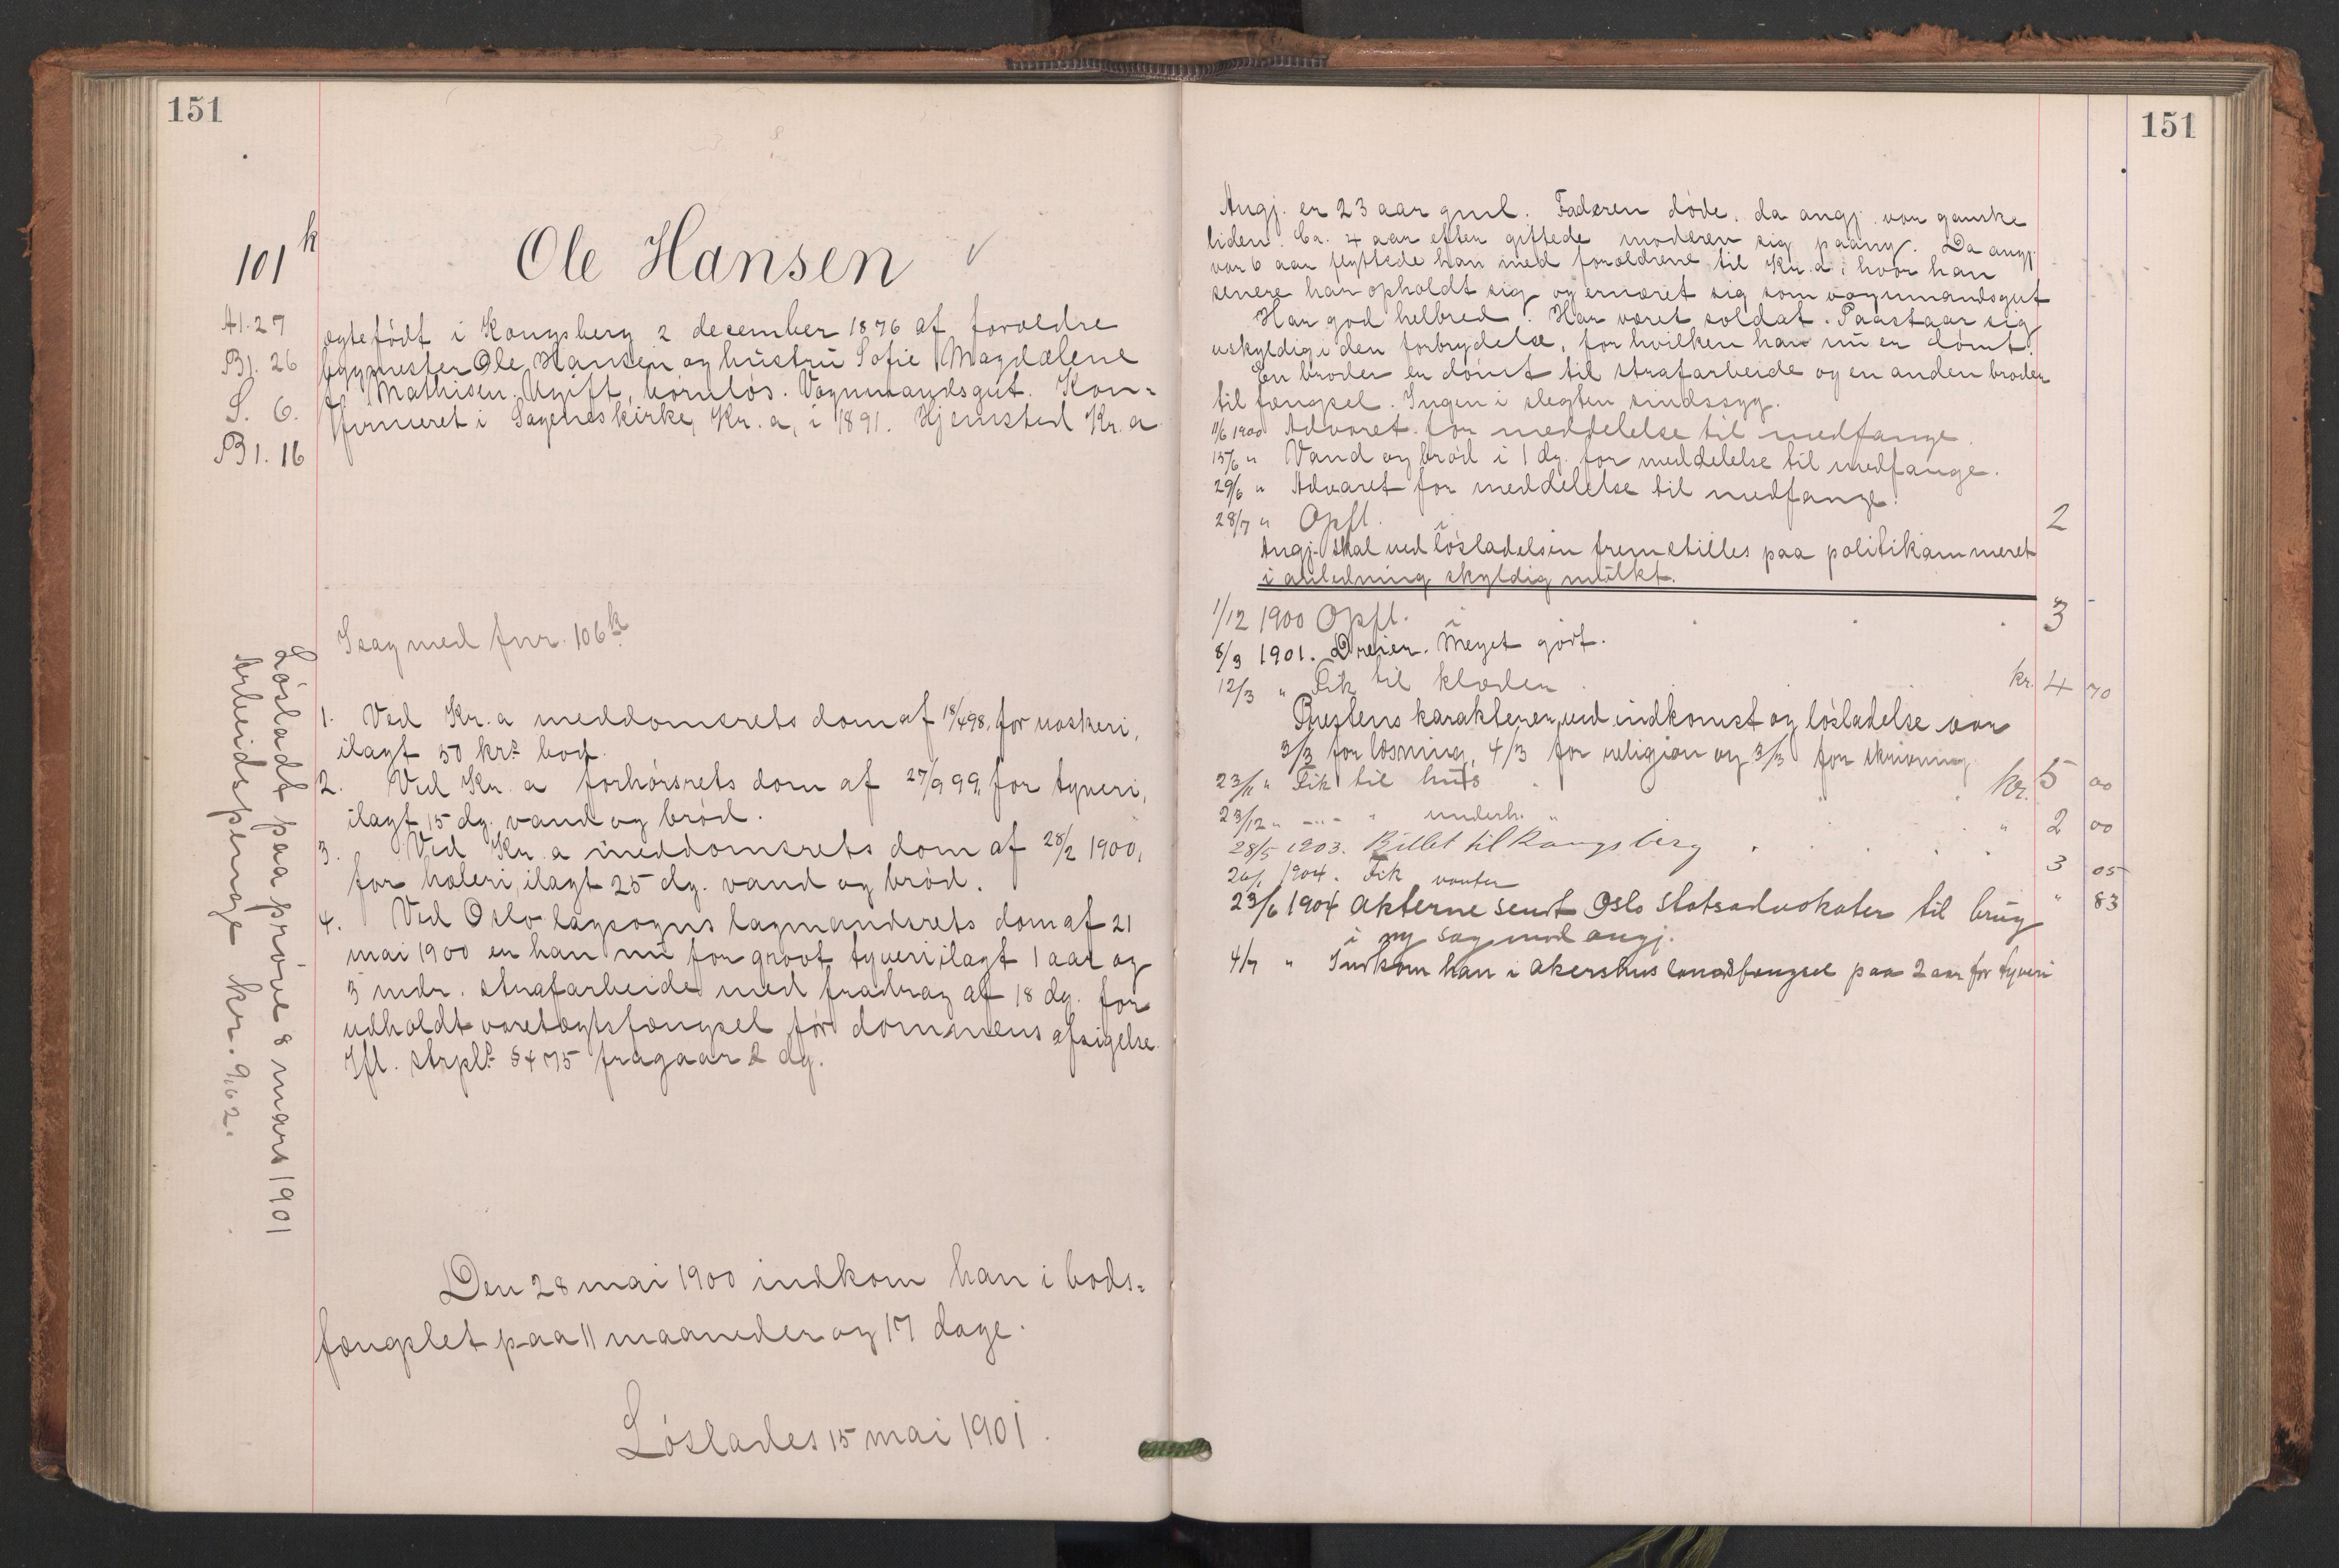 151
101 k
Ole Hansen ✓
A1. 27
B1. 26
S. 6.
B1. 16
ægtefödt i Kongsberg 2 december 1876 af forældre
bygmester Ole Hansen og hustru Sofie Magdalene
Mathisen. Ugift, börnlös. Vognmandsgut. Kon-
firmeret i Sagenes kirke, Kr.a, i 1891. Hjemsted Kr.a
I sag med fnr. 106 k
1. Ved Kr.a meddomsrets dom af 18/4 98, for uoskeri,
ilagt 50 krs. bod.
2. Ved Kr.a forhörsrets dom af 27/9 99, for tyveri,
ilagt 15 dg. vand og bröd.
3. Ved Kr.a meddomsrets dom af 28/2 1900,
for hæleri, ilagt 25 dg. vand og bröd.
4. Ved Oslo lagsogns lagmandsrets dom af 21
mai 1900 er han nu for grovt tyveri ilagt 1 aar og
3 mdr. strafarbeide med fradrag af 18 dg. for
udholdt varetægtsfængsel för dommens afsigelse.
Ifl. strpl. § 475 fragaar 2 dg.
Den 28 mai 1900 indkom han i bods-
fængslet paa 11 maaneder og 17 dage.
Löslades 15 mai 1901.
Lösladt paa pröve 8 mars 1901
Arbeidspenge kr. 9,62.
151
Angj. er 23 aar gml. Faderen döde, da angj. var ganske
liden. Ca. 4 aar efter giftede moderen sig paany. Da angj.
var 6 aar flyttede han med forældrene til Kr.a, hvor han
senere har opholdt sig og ernæret sig som vognmandsgut
Har god helbred. Har været soldat. Paastaar sig
uskyldig i den forbrydelse, for hvilken han nu er dömt.
En broder er dömt til strafarbeide og en anden broder
til fængsel. Ingen i slegten sindssyg.
11/6 1900 Advaret for meddelelse til medfange.
15/6 " Vand og bröd i 1 dg. for meddelelse til medfange.
29/6 " Advaret for meddelelse til medfange.
28/7 " Opfl. i 2
Angj. skal ved lösladelsen fremstilles paa politikammeret
i anledning skyldig mulkt.
1/12 1900 Opfl. i 3
8/3 1901. Dreier. Meget godt.
12/3 " Fik til klæder kr. 4 70
Prestens karakterer ved indkomst og lösladelse var
3/3 for læsning, 4/3 for religion og 3/3 for skrivning
23/11 " Fik til hus kr. 5 00
23/12 " -"- " underh. " " 2 00
28/5 1903. Billet til Kongsberg 3 05
26/1 1904. Fik vanter " 83
23/6 1904 Akterne sendt Oslo statsadvokater til brug
i ny sag mod angj.
4/7 " Indkom han i Akershus landsfængsel paa 2 aar for tyveri